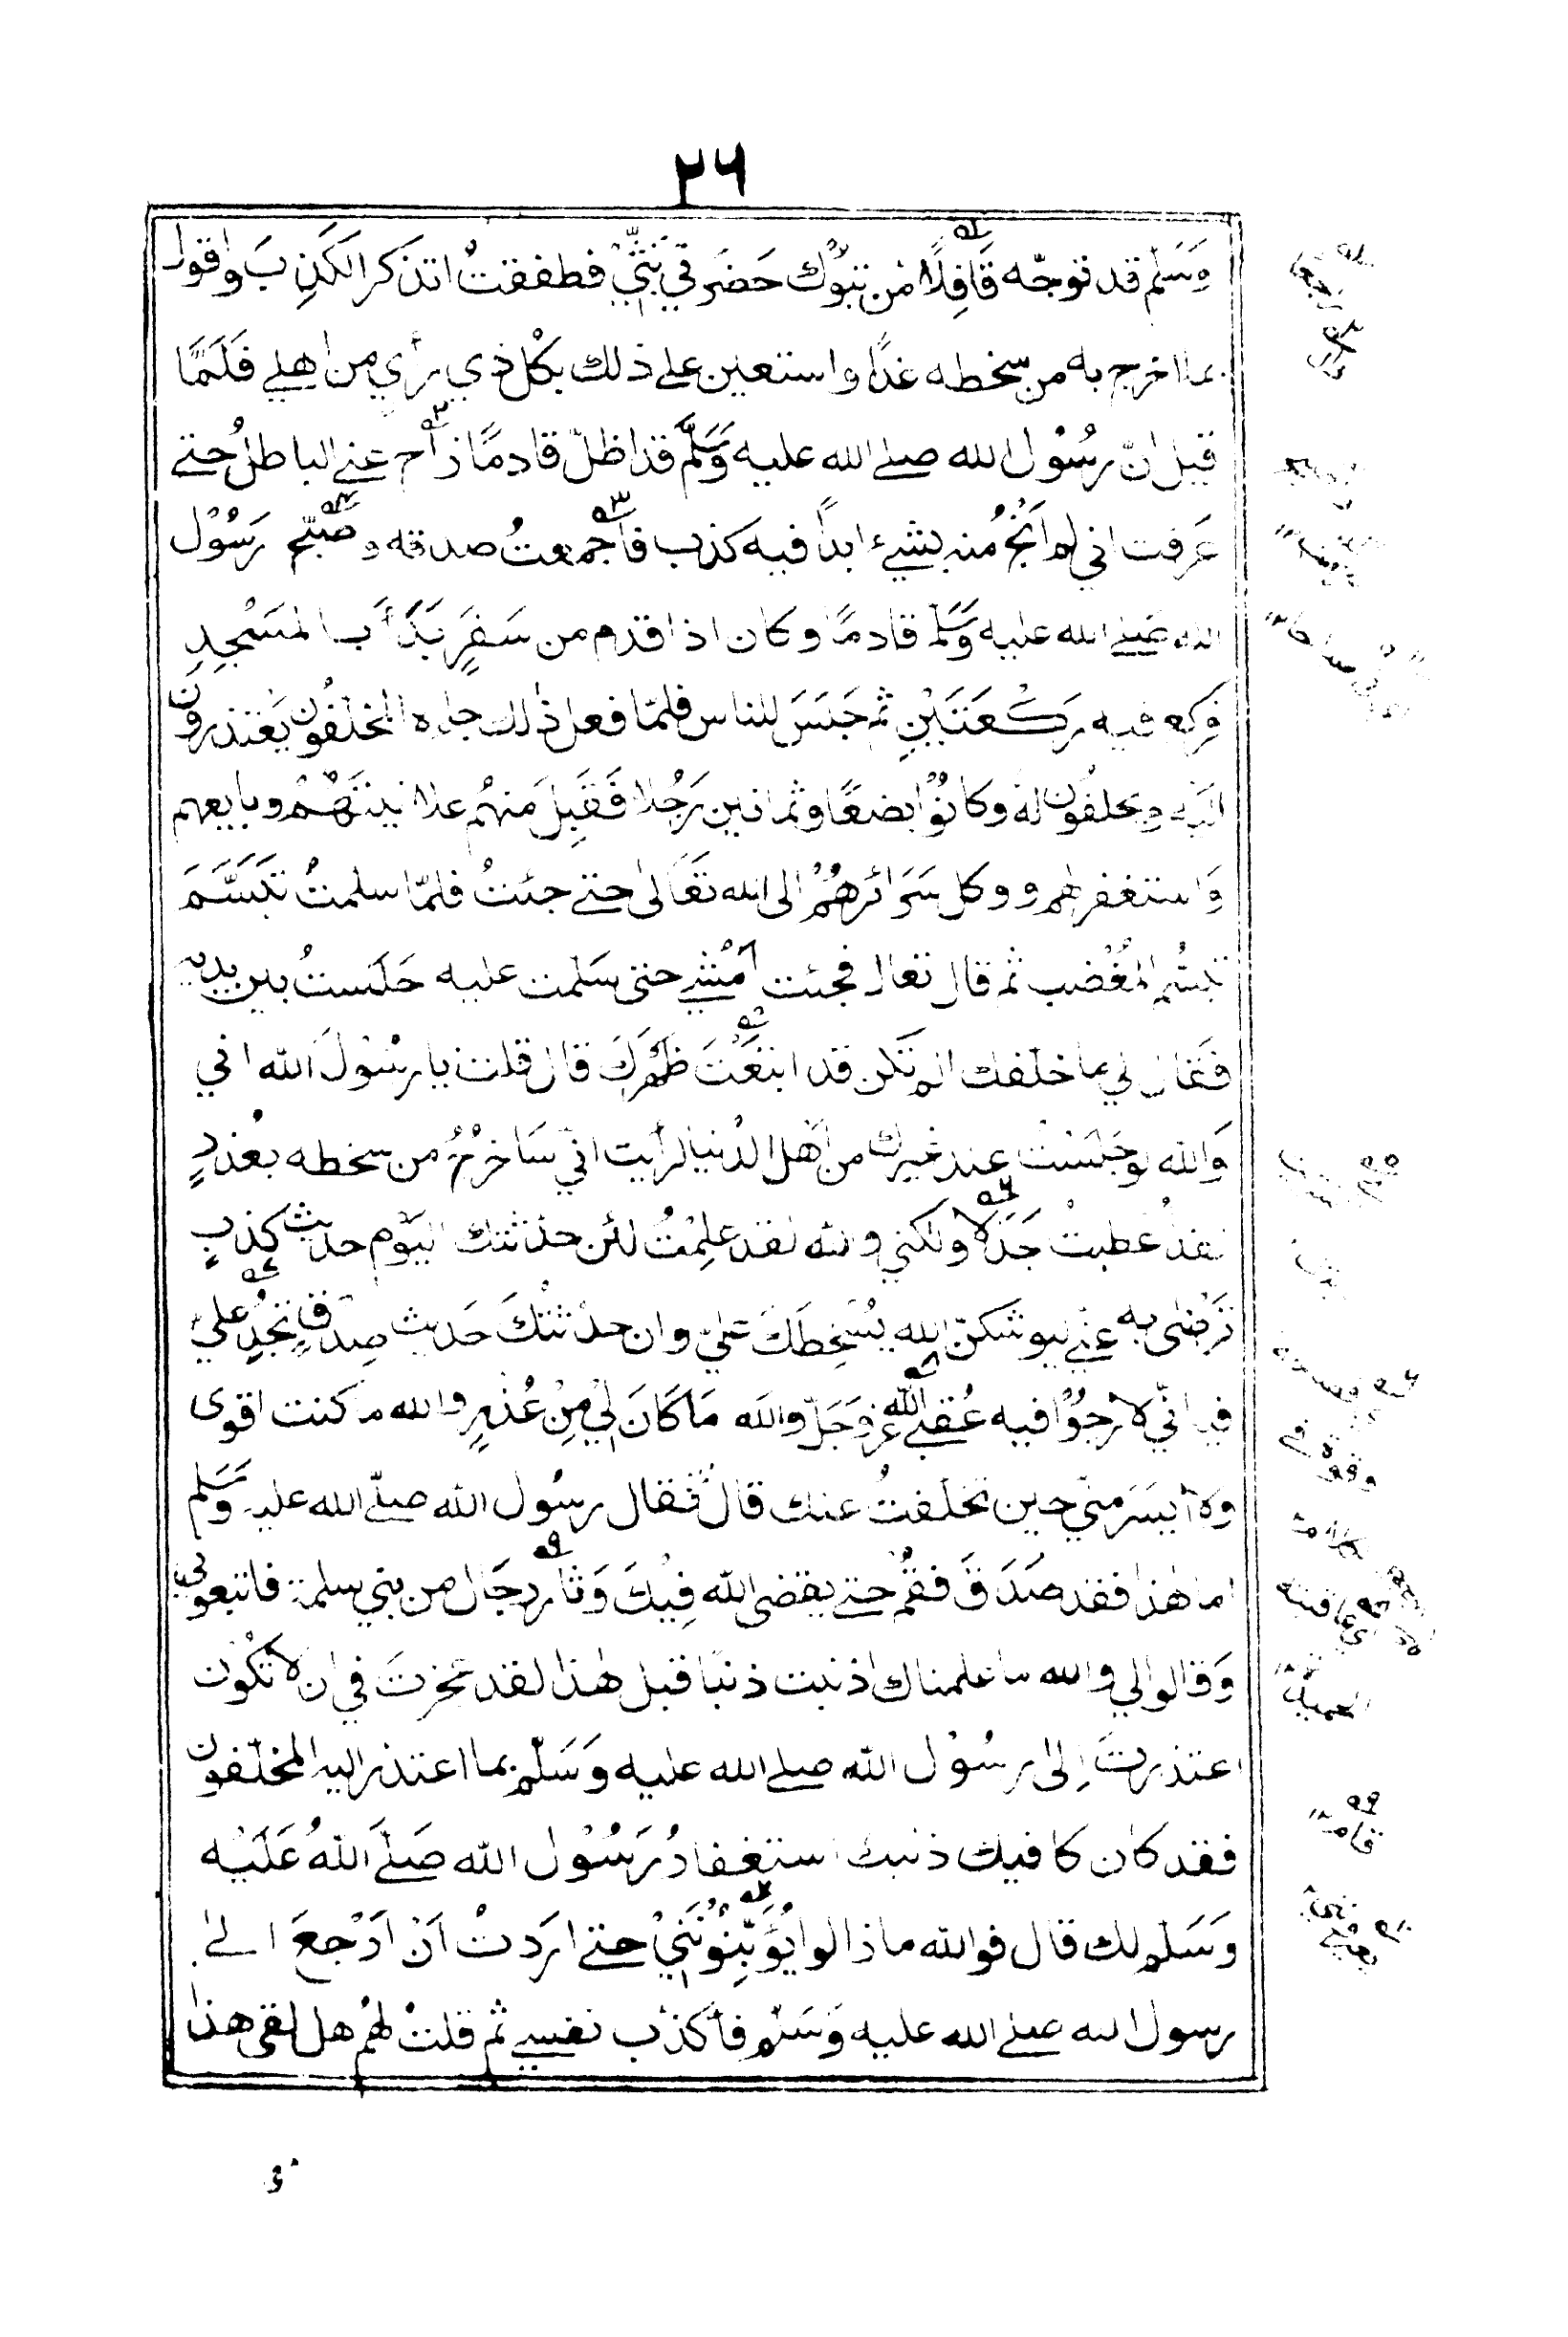 ٢٦
وَسَلَّم قد توجّه قَافِلًا من تبوك حَضَرَني بَثِّيْ فطفقتُ اتذكر الكَذِبَ واقول
بما اخرج به من سخطه غدًا واستعين علے ذلك بكل ذي رأي من اهلي فَلَمَّا
قيل انّ رسُوْل الله صلے الله عليه وَسَلَّم قد اظلّ قادمًا زاح عني الباطلُ حتے
عَرفت اني لم اَنْجُ منه بشيء ابدًا فيه كذب فاجمعتُ صدقه وصَبَّح رَسُوْل
الله صَلے الله عليه وَسَلَّم قادمًا وكان اذا قدم من سَفَرٍ بَدَأَ بالمَسْجِدِ
فركع فيه ركْعَتَيْنِ ثم جَلَسَ للناس فلمّا فعل ذٰلك جاءه المخلفُون يَعْتذرونَ
اليه ويحلفُون له وكانُوْا بضعًا وثمانين رَجُلا فَقَبِلَ مَنهُم علانيتَهُمْ وبايعهم
وَاستغفر لهم ووكل سَرَائرهُمْ الى الله تَعَالىٰ حتے جئتُ فلمّا سلمتُ تَبَسَّمَ
تبسُّم المغْضب ثم قال تعال فجئت اَمْشي حتى سَلمت عليه جَلَستُ بين يديه
فَقال لي ما خلّفك الم تكن قد ابتعْتَ ظَهْرَكَ قال قلت يا رسُولَ الله اني
وَالله لو جَلسْتُ عند غيرك من اَهل الدُنيا لرأيت انّي سَاخرُجُ من سخطه بعُذرٍ
لقد اُعْطيتُ جَدَلا ولكني والله لقد علِمْتُ لئن حدّثتك اليَوْم حديث كذبٍ
تَرضىٰ به عني ليوشكنّ الله يُسْخِطَكَ عَليّ وان حدّثتُكَ حَديث صِدقٍ تجِدُ عليّ
فيه انّي لارجُوْا فيه عُقبے الله عَزّ وَجَلّ والله مَا كَانَ لِيْ مِنْ عُذرٍ والله ما كنت اقوى
ولا اَيسَرَ منّي حين تخلفتُ عنك قالْ فقال رسُول الله صلّے الله عليه وَسَلم
اما هٰذا فقد صَدَقَ فقُمْ حتے يقضى الله فِيْكَ وَثار رجَال من بني سلمة فاتبعوني
وَقالوا لي والله ما علمناك اذنبت ذنبًا قبل هٰذا لقد عجزتَ في ان لا تكُوْن
اعتذرتَ اِلىٰ رسُوْل الله صلے الله عليه وَسَلَّم بما اعتذر اليه المخلّفون
فقد كان كافيك ذنبك استغفارُ رَسُوْل الله صَلَّے اللّٰهُ عَلَيْه
وَسَلم لك قال فوالله ما زالوا يُؤَنِّبُوْنَنِيْ حتے اردتُ اَنْ اَرْجعَ الےٰ
رسول الله صلے الله عليه وَسَلم فاُكذّب نفسي ثم قلتُ لهُم هل لقى هذا